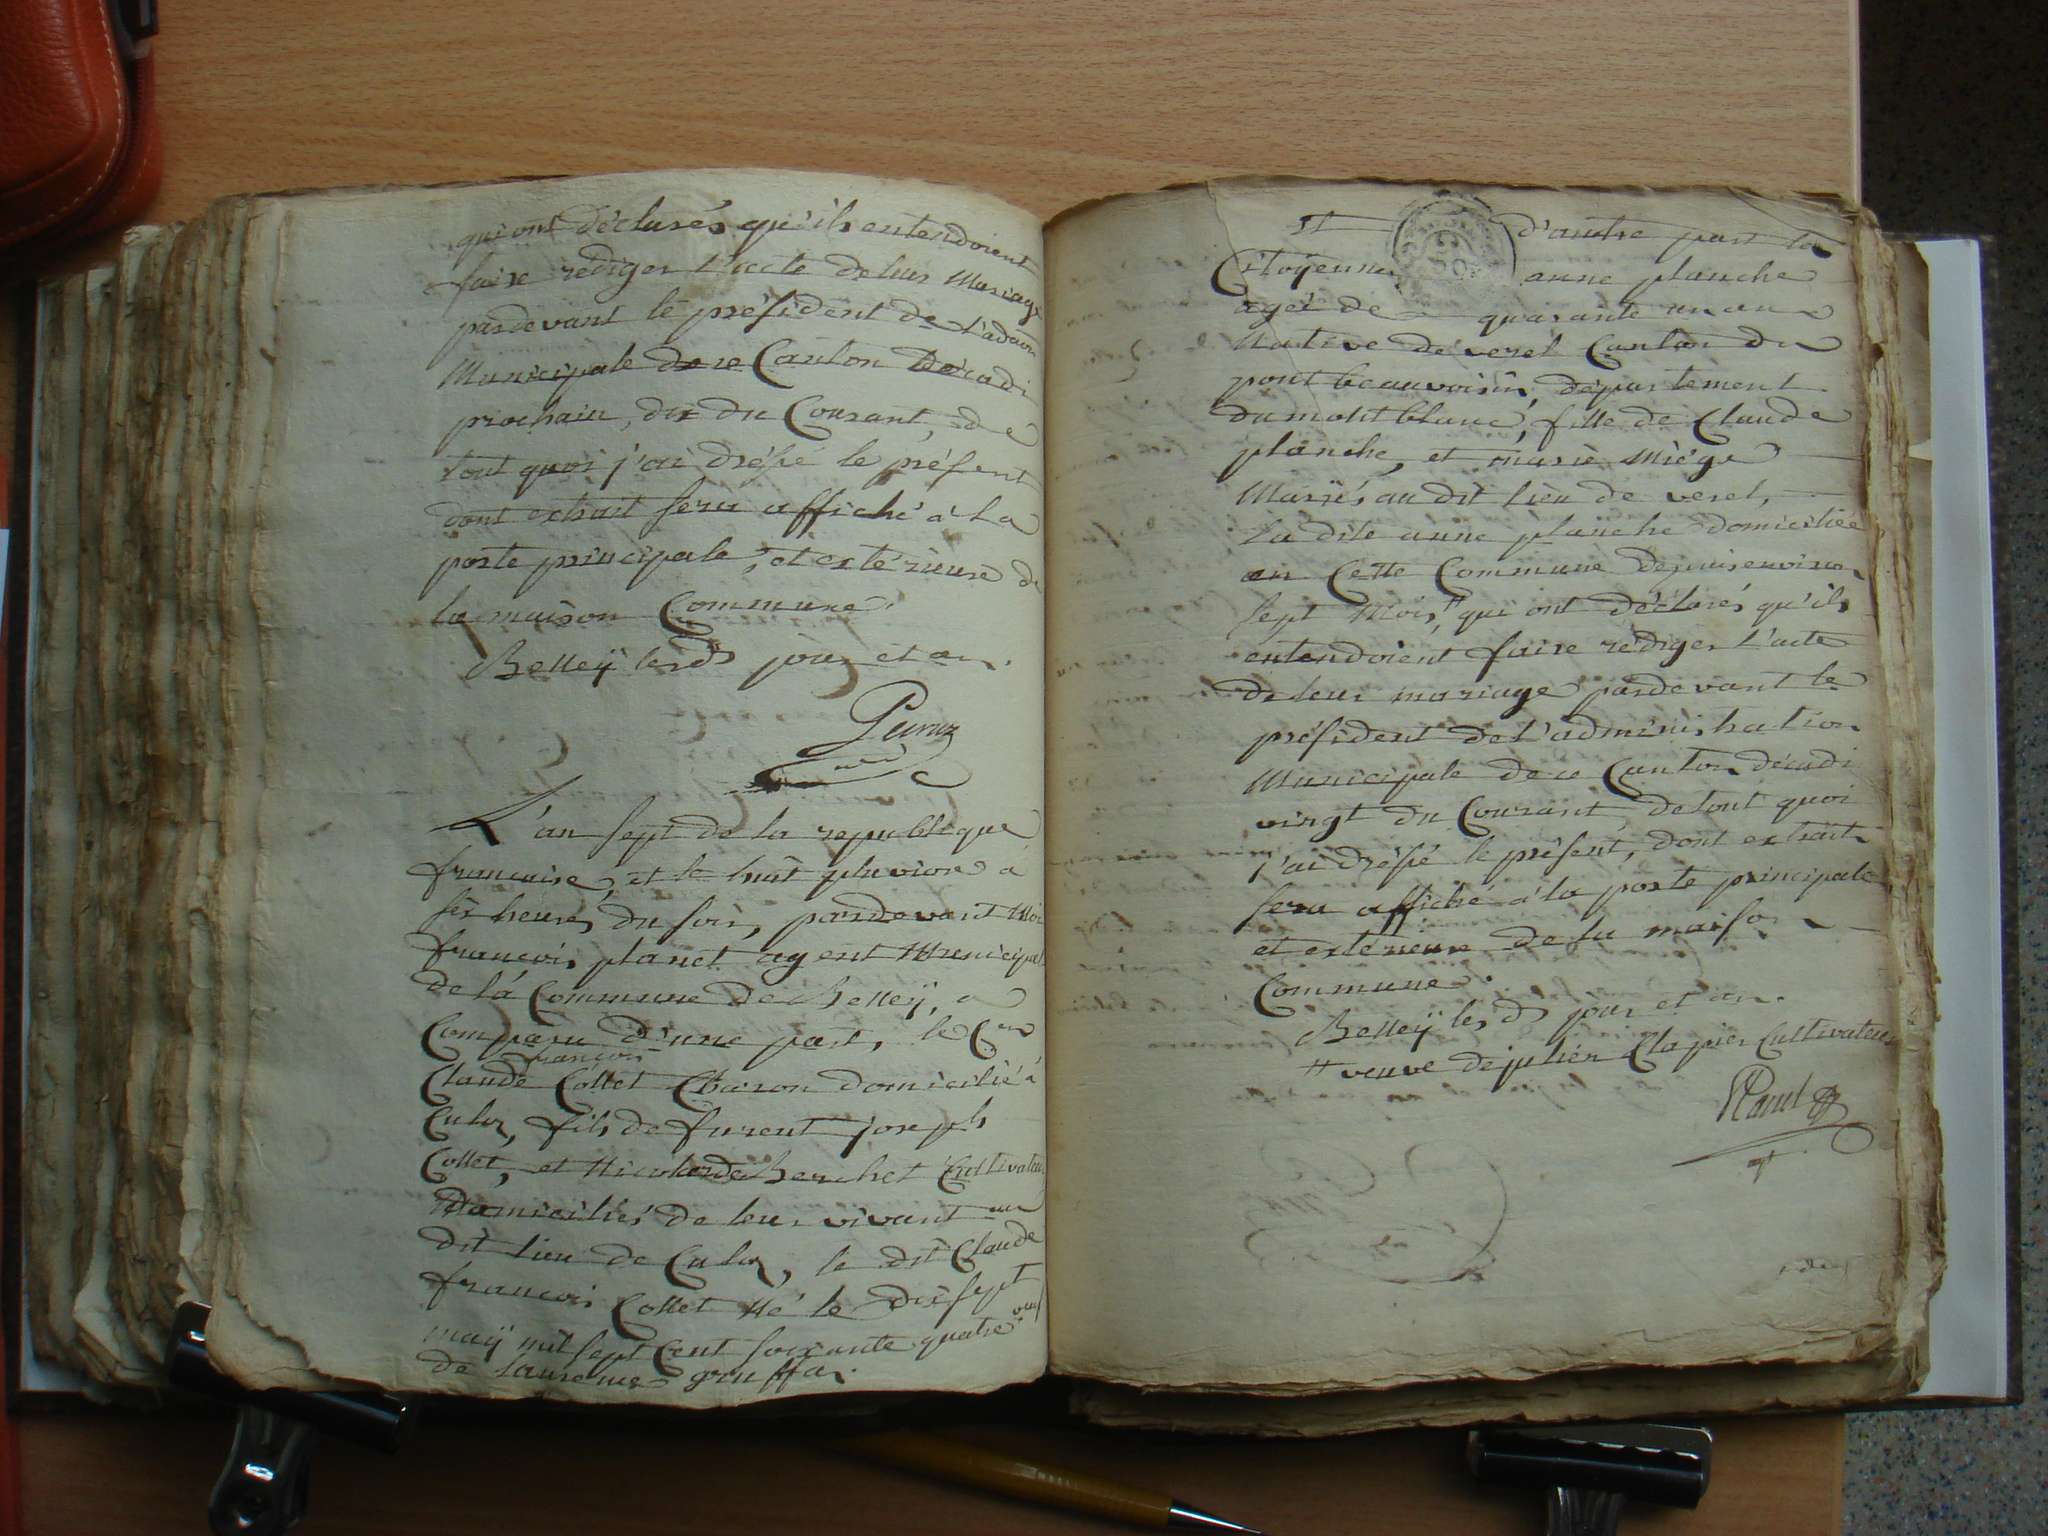 qui ont déclarés qu'ils entendoient
faire rediger l'acte de leur Mariage
pardevant le président de l'adaon
Municipale de ce Canton Décadi
prochain, dix du Courant, de
tout quoi j'ai dréssé le présent
dont extrait sera affiché à la
porte principale, et extérieure de
la maison Commune.
Belleÿ les ds jour et an.
L'an sept de la republique
francaise, et le huit pluviose à
six heures du soir, pardevant Moi
francois planet agent Municipal
de la Commune de Belleÿ, a
Comparu d'une part, le Cen
francois
Claude Collet Charon domicilié à
Culoz, fils de furent joseph
Collet, et Nicolarde Berchet Cultivateurs
Domiciliés de leur vivant au
dit lieu de Culoz, le dit Claude
francois Collet Né le dix sept
maÿ mil sept Cent soixante quatre veuf
de laurence gruffa
et d'autre part la
Citoÿenne anne planche
agée de quarante un an
Native de verel Canton du
pont beauvoisin, département
du mont blanc, fille de Claude
planche, et marie Miège
Mariés au dit lieu de verel,
la dite anne planche domiciliée
en Cette Commune depuis environ
sept Mois, # qui ont déclarés qu'ils
entendoient faire rédiger l'acte
de leur mariage pardevant le
président de l'administration
Municipale de ce Canton décadi
vingt du Courant, de tout quoi
j'ai dréssé le présent, dont extrait
sera affiché à la porte principale
et extérieure de la maison
Commune.
Belleÿ les ds jour et an.
# veuve de julien Clapier Cultivateur
Planet